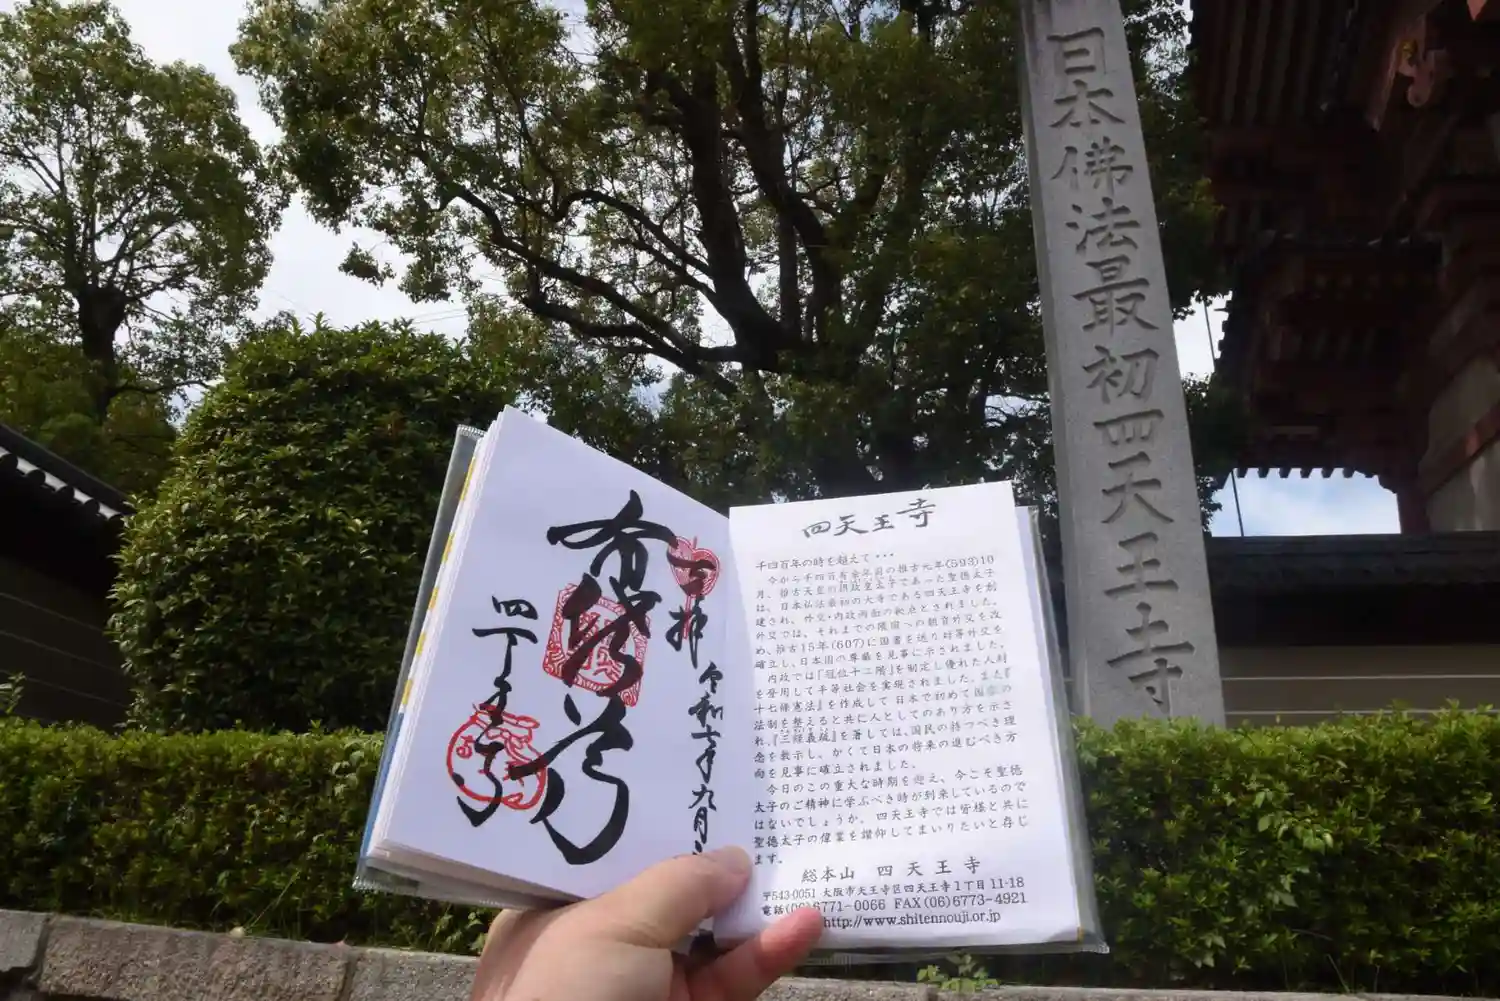 日本佛法最初四天王寺
奉拝
令和七年九月
布袋尊
四天王寺
四天王寺
千四百年の時を超えて・・・
今から千四百有余年前の推古元年(593)10
月、推古天皇の摂政皇太子であった聖徳太子
は、日本仏法最初の大寺である四天王寺を創
建され、外交・内政両面の拠点とされました。
外交では、それまでの隣国への朝貢外交を改
め、推古15年(607)に国書を送り対等外交を
確立し、日本国の尊厳を見事に示されました。
内政では「冠位十二階」を制定し優れた人材
を登用して平等社会を実現されました。また『
十七條憲法』を作成して日本で初めて国家の
法制を整えると共に人としてのあり方を示さ
れ、『三経義疏』を著しては、国民の持つべき理
念を教示し、かくて日本の将来の進むべき方
向を見事に確立されました。
今日のこの重大な時期を迎え、今こそ聖徳
太子のご精神に学ぶべき時が到来しているので
はないでしょうか。四天王寺では皆様と共に
聖徳太子の偉業を讃仰してまいりたいと存じ
ます。
総本山 四天王寺
〒543-0051 大阪市天王寺区四天王寺1丁目11-18
電話(06)6771-0066 FAX(06)6773-4921
http://www.shitennouji.or.jp